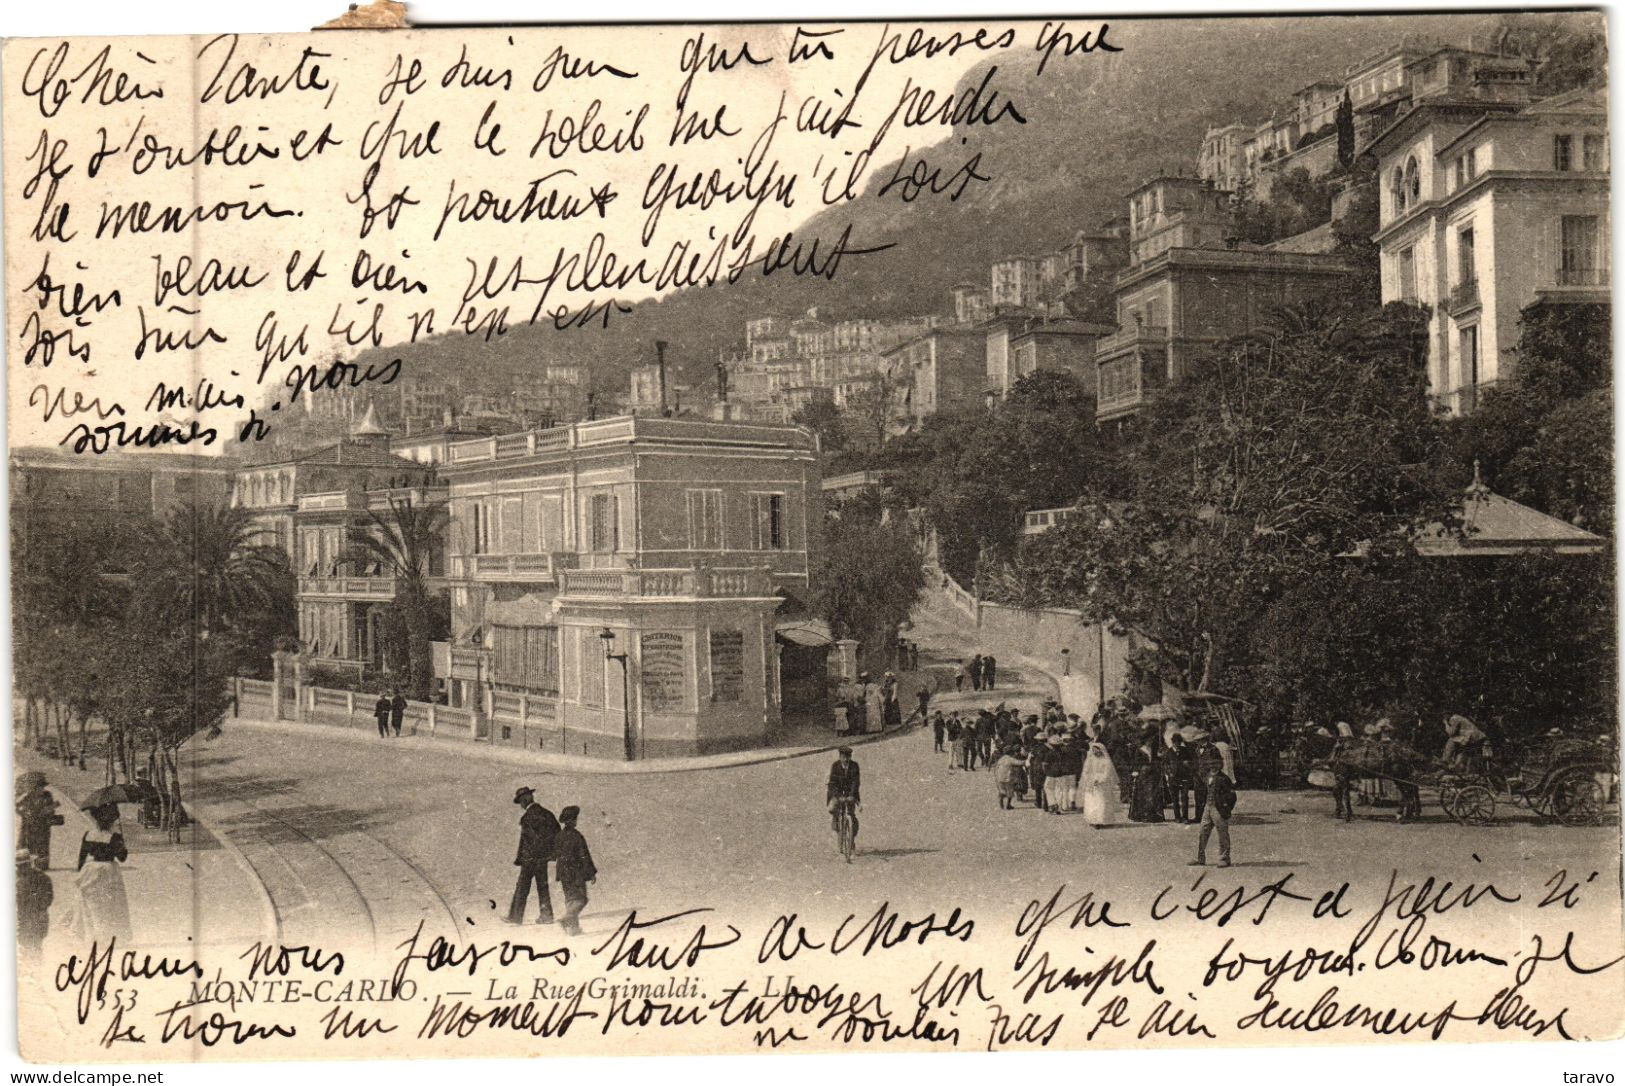 Chère Tante, je suis sûre que tu penses que
je t'oublie et que le soleil me fait perdre
la mémoire. Et pourtant quoiqu'il soit
bien beau et bien resplendissant
sois sûre qu'il n'en est
rien mais nous
sommes si
CRITERION
affairés, nous faisons tant de choses que c'est à peine si
353 MONTE-CARLO. — La Rue Grimaldi. — LL.
je trouve un moment pour t'envoyer un simple bonjour. Comme je
ne voulais pas te seulement
delcampe.net
taravo